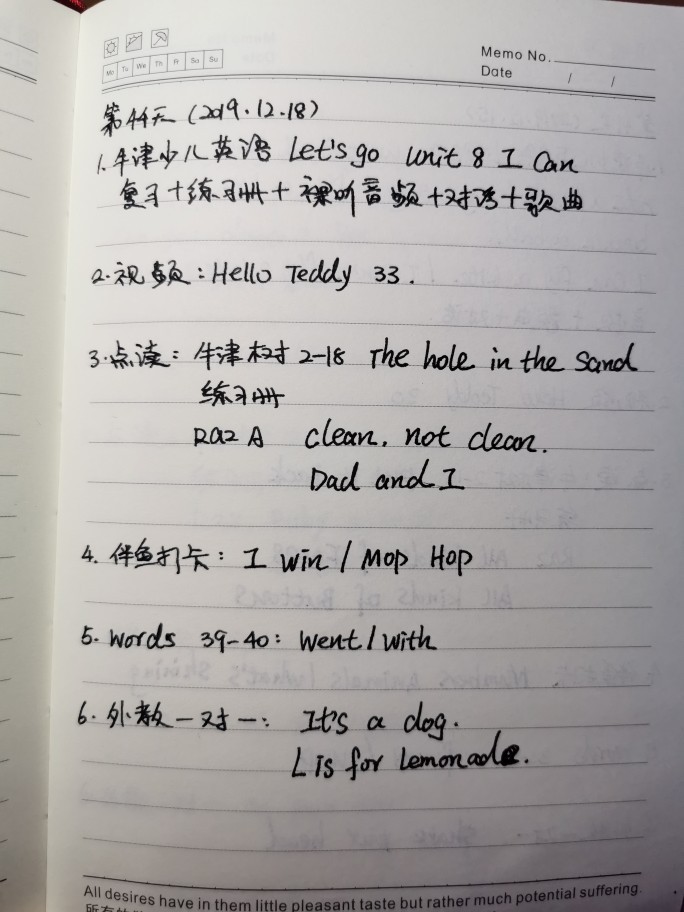 Mo Tu We Th Fr Sa Su
Memo No.
Date / /
第44天 (2019.12.18)
1.牛津少儿英语 Let's go Unit 8 I Can
复习+练习册+裸听音频+对话+歌曲
2.视频:Hello Teddy 33.
3.点读: 牛津树 2-18 The hole in the Sand
练习册
RAZ A clean, not clean.
Dad and I
4. 伴鱼打卡: I win / Mop Hop
5. words 39-40: Went / with
6. 外教一对一: It's a dog.
L is for Lemonade.
All desires have in them little pleasant taste but rather much potential suffering.